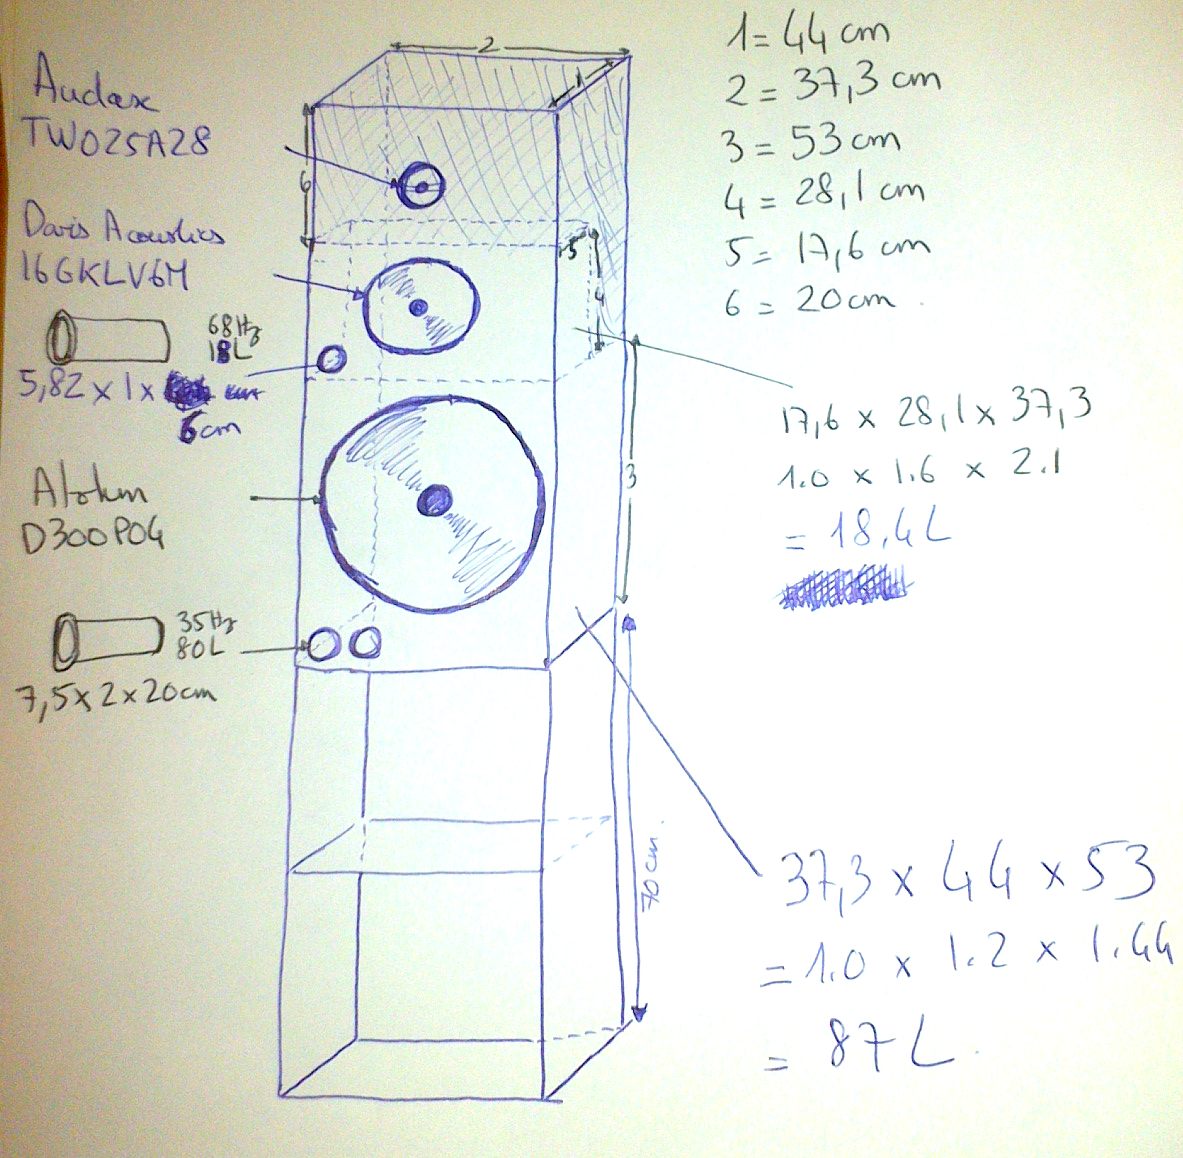 Audax
TW025A28
Davis Acoustics
16GKLV6M
68Hz
18L
5,82 x 1 x
6cm
D300P04
35Hz
80L
7,5 x 2 x 20cm
2
1
6
5
4
3
70cm.
1= 44 cm
2 = 37,3 cm
3 = 53 cm
4 = 28,1 cm
5 = 17,6 cm
6 = 20cm.
17,6 x 28,1 x 37,3
1.0 x 1.6 x 2.1
= 18,4 L
37,3 x 44 x 53
= 1.0 x 1.2 x 1.44
= 87 L.